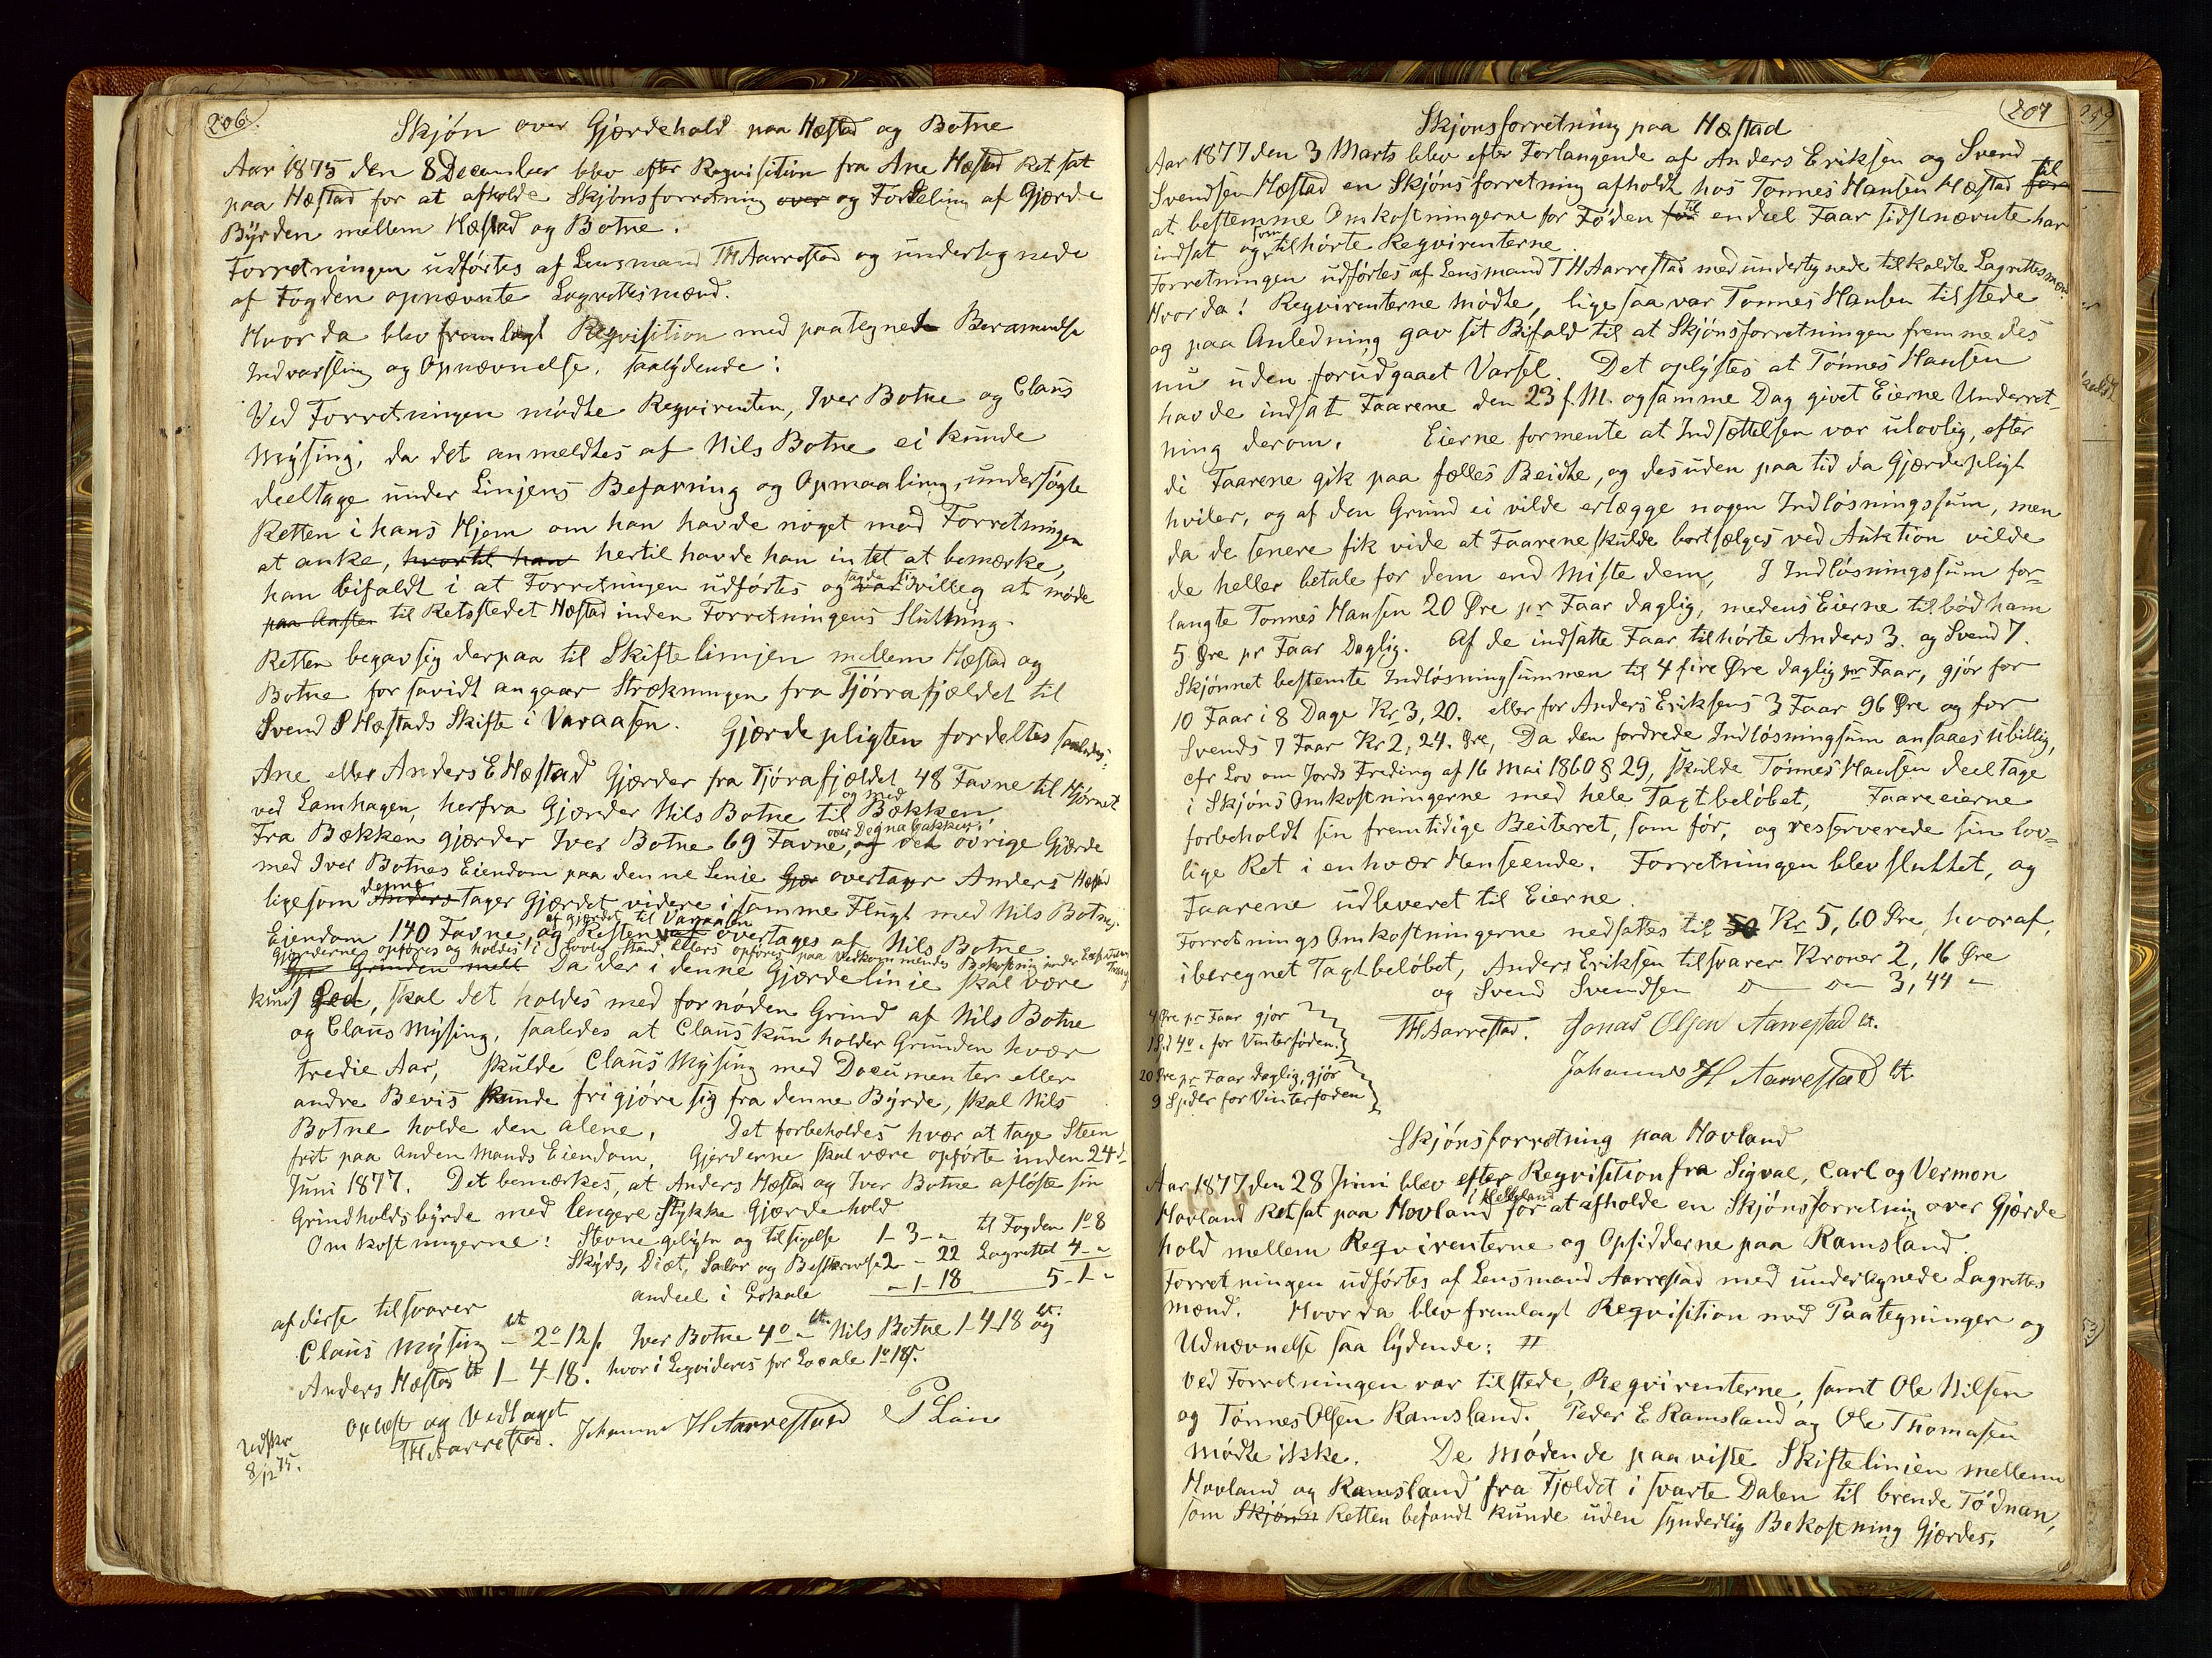 206.
Skjøn over Gjærdehold paa Hæstad og Botne
Aar 1875 den 8 December blev efter Reqvisition fra Ane Hæstad Ret sat
paa Hæstad for at afholde Skjønsforretning over og Fordeling af Gjærde
Byrden mellem Hæstad og Botne.
Forretningen udførtes af Lensmand TH Aarrestad og undertegnede
af Fogden opnævnte Lagrettesmænd.
Hvorda blev fremlagt Reqvisition med paategnede Berammelse
Indvarsling og Opnævnelse, saalydende:
Ved Forretningen mødte Reqvirenten, Iver Botne og Claus
Mysing, da det anmeldtes af Nils Botne ei kunde
deeltage under Linjens Befaring og Opmaaling, undersøgte
Retten i hans Hjem om han havde noget mod Forretningen
at anke, hvortil han hertil havde han intet at bemærke,
han bifaldt i at Forretningen udførtes og var sagde sig villeg at møde
paa Aasten til Retsstedet Hæstad inden Forretningens Slutning.
Retten begav sig derpaa til Skiftelinjen mellem Hæstad og
Botne for saavidt angaar Strækningen fra Tjørrafjældet til
Svend S Hæstads Skifte i Varaasen. Gjærdepligten fordeltes saaledes:
Ane eller Anders E Hæstad Gjærder fra Tjørafjældet 48 Favne til Hjørnet
ved Lamhagen, herfra Gjærder Nils Botne til og med Bækken,
Fra Bækken gjærder Iver Botne 69 Favne, over Degnabakken, og det øvrige Gjærde
med Iver Botnes Eiendom paa denne Linie Gjær overtager Anders Hæstad
ligesom Anders denne tager Gjærdet videre i samme Flugt med Nils Botnes
Eiendom 140 Favne, og Resten af gjærdet til Varaasen overtages af Nils Botne
Gjærderne opføres og holdes i lovlig Stand, ellers opføres paa Vedkommendes Bekostning under
Gjr Grinden mell Da der i denne Gjærdelinie skal være
kuns Led, skal det holdes med fornøden Grind af Nils Botne
og Claus Mysing, saaledes at Claus kun holder Grinden hvær
tredie Aar, skulde Claus Mysing med Documenter eller
andre Bevis kunde frigjøre sig fra denne Byrde, skal Nils
Botne holde den alene. Det forbeholdes hvær at tage Steen
frit paa Anden Mands Eiendom. Gjerderne skal være opførte inden 24de
Juni 1877. Det bemærkes, at Anders Hæstad og Iver Botne afløste sin
Grindholdsbyrde med længere Stykke Gjærdehold
Omkostningerne: Stevne og tilsigelse 1-3-" til Fogden 1o 8
Skyds, Diæt, Salær og 2 - 22 Lagrettet 4-"
andeel i Lokale -1-18 5-1-"
af disse tilsvarer
Claus Mysing - 2o 12 s Iver Botne 4o - Nils Botne 1-4-18 og
Anders Hæstad 1-4-18. hvori Leqvideres for Locale 1o 18 s.
Oplæst og Vedtaget
TH Aarrestad. Johannes H Aarrestad P Lein
Udskr
8/12 75.
207
Skjønsforretning paa Hæstad
Aar 1877 den 3 Marts blev efter Forlangende af Anders Eriksen og Svend
Svendsen Hæstad en Skjønsforretning afholdt hos Tønnes Hansen Hæstad for til
at bestemme Omkostningerne for Føden for til endeel Faar sidstnævnte har
indsat og som tilhørte Reqvirenterne.
Forretningen udførtes af Lensmand TH Aarrestad med undertegnede tilkaldte Lagrettesmænd
Hvorda! Reqvirenterne mødte, ligesaa var Tønnes Hansen tilstede
og paa Anledning gav sit Bifald til at Skjønsforretningen fremmedes
nu uden forudgaaet Varsel. Det oplystes at Tønnes Hansen
havde indsat Faarene den 23 f. M. og samme Dag givet Eierne Underret-
ning derom. Eierne formente at Indsættelsen var ulovlig, efter
di Faarene gik paa fælles Beite, og desuden paa tid da Gjærdepligt
hviler, og af den Grund ei vilde erlægge nogen Indløsningssum, men
da de senere fik vide at Faarene skulde bortsælges ved Auktion vilde
de heller betale for dem end miste dem, I Indløsningssum for-
langte Tønnes Hansen 20 Øre pr Faar daglig, medens Eierne tilbød ham
5 Øre pr Faar Daglig. Af de indsatte Faar tilhørte Anders 3. og Svend 7.
Skjønnet bestemte Indløsningsummen til 4 fire Øre daglig pr Faar, gjør for
10 Faar i 8 Dage Kr 3,20. eller for Anders Eriksens 3 Faar 96 Øre og for
Svends 7 Faar Kr 2,24. Øre, Da den fordrede Indløsningsum ansaaes ubillig,
cfr Lov om Jords Freding af 16 Mai 1860 § 29, skulde Tønnes Hansen deeltage
i SkjønsOmkostningerne med hele Taxtbeløbet, Faareeierne
forbeholdt sin fremtidige Beiteret, som før, og resserverede sin lov-
lige Ret i enhvær Henseende. Forretningen blev sluttet, og
Faarene udleveret til Eierne.
ForretningsOmkostningerne nedsattes til 50 Kr 5,60 Øre, hvoraf,
iberegnet Taxtbeløbet, Anders Eriksen tilsvarer Kroner 2,16 Øre
og Svend Svendsen D D 3,44 "
4 Øre pr Faar gjør
1 Spd 4o " for Vinterføden.
20 Øre pr Faar daglig, gjør
9 Spdlr for Vinterføden
TH Aarrestad. Jonas Olsen Aarrestad
Johannes H Aarrestad
Skjønsforretning paa Hovland
Aar 1877 den 28 Juni blev efter Reqvisition fra Sigval, Carl og Vermon
Hovland Ret sat paa Hovland i Helleland for at afholde en Skjønsforretning over Gjærde
hold mellem Reqvirenterne og Opsidderne paa Ramsland.
Forretningen udførtes af Lensmand Aarrestad med undertegnede Lagrettes
mænd. Hvorda blev fremlagt Reqvisition med Paategninger og
Udnævnelse saa lydende: #
Ved Forretningen var tilstede, Reqvirenterne, samt Ole Nilsen
og Tønnes Olsen Ramsland. Peder E Ramsland og Ole Thomasen
mødte ikke. De Mødende paaviste Skiftelinien mellem
Hovland og Ramsland fra Fjeldet i svarte Dalen til brende Tødnan,
som Skjønn Retten befandt kunde uden synderlig Bekostning Gjærdes.